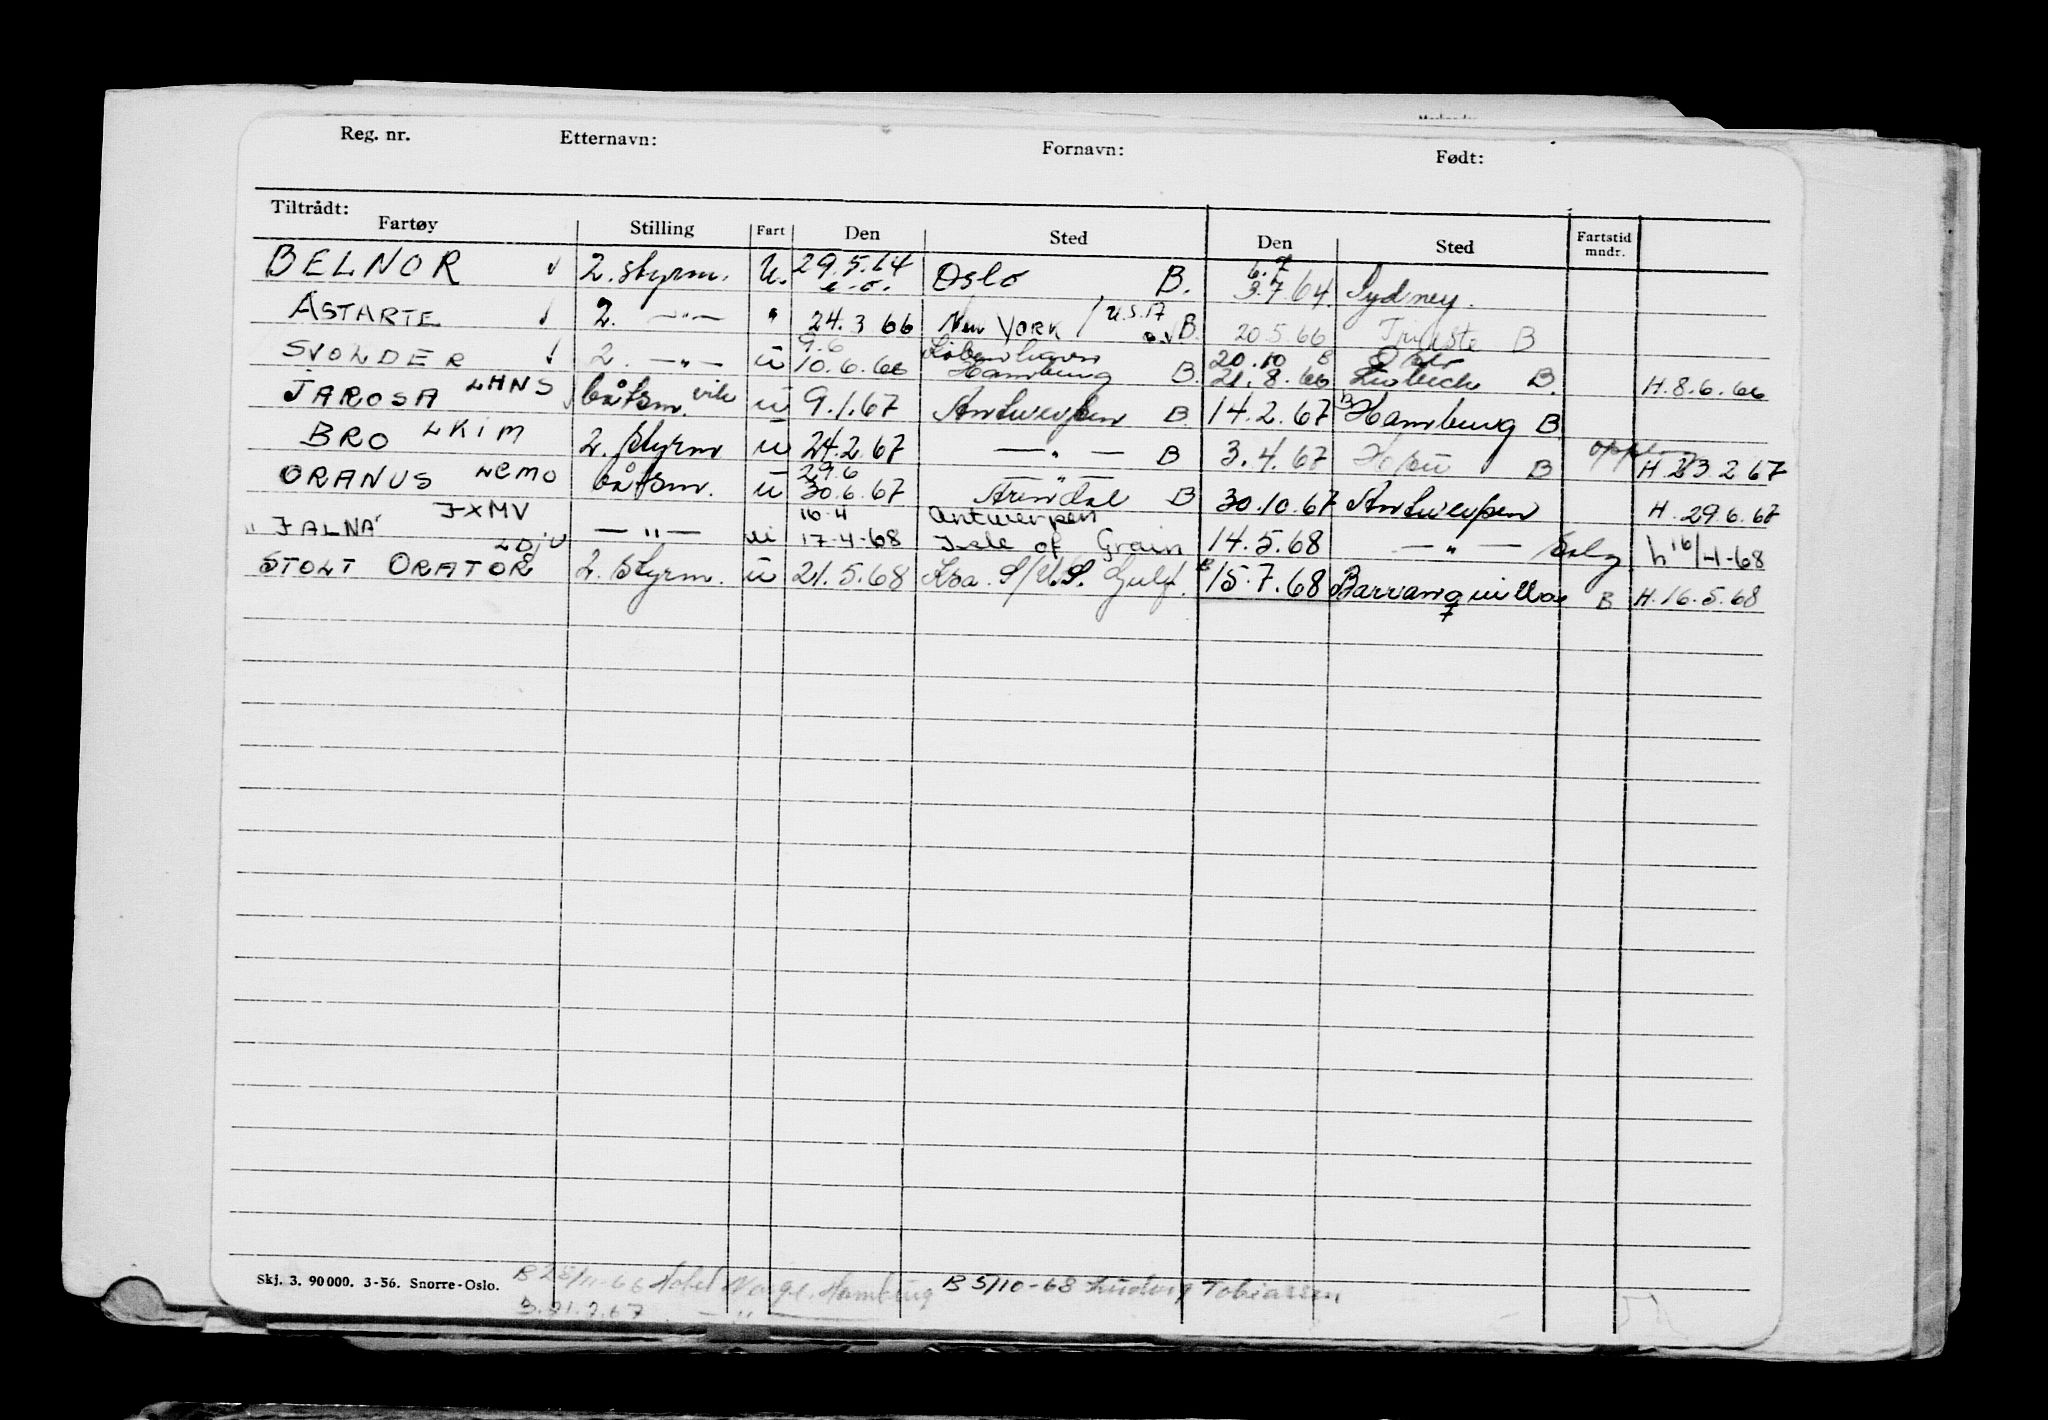 Reg. nr. Etternavn: Fornavn: Født:
Tiltrådt:
Fartøy Stilling Fart Den Sted Den Sted Fartstid mndr.
BELNOR 2. styrm. U. 29.5.64 Oslo B. 6.7 3.7.64. Sydney.
ASTARTE 2. —"— " 24.3 66 New York / B. 20.5.66 Trieste B
SVOLDER 2. —"— u 9.6 10.6.66 Københaven Hamburg B. 20.10 21.8.66 Lübeck B. H. 8.6.66
JAROSA LHNS båtsm. vik u 9.1.67 Antwerpen B 14.2.67 B Hamburg B.
BRO LKIM 2. styrm u 24.2.67 —"— B 3.4.67 B H. 23.2.67
ORANUS LCMO båtsm. u 29.6 30.6.67 Arendal B 30.10.67 Antwerpen H. 29.6.67
" JALNA JXMV —"— u 16.4 17-4-68 Antwerpen Isle of Grain 14.5.68 —"— Solg h 16/4-68
STOLT ORATOR LDJU 2. Styrm. u 21.5.68 S/U.S. Gulf. B 15.7.68 Barranquilla B H. 16.5.68
Skj. 3. 90 000. 3-56. Snorre-Oslo. B 28/11-66 Hotel Norge, Hamburg B 5/10-68 Ludvig Tobiassen
B. 21.2.67 —"—